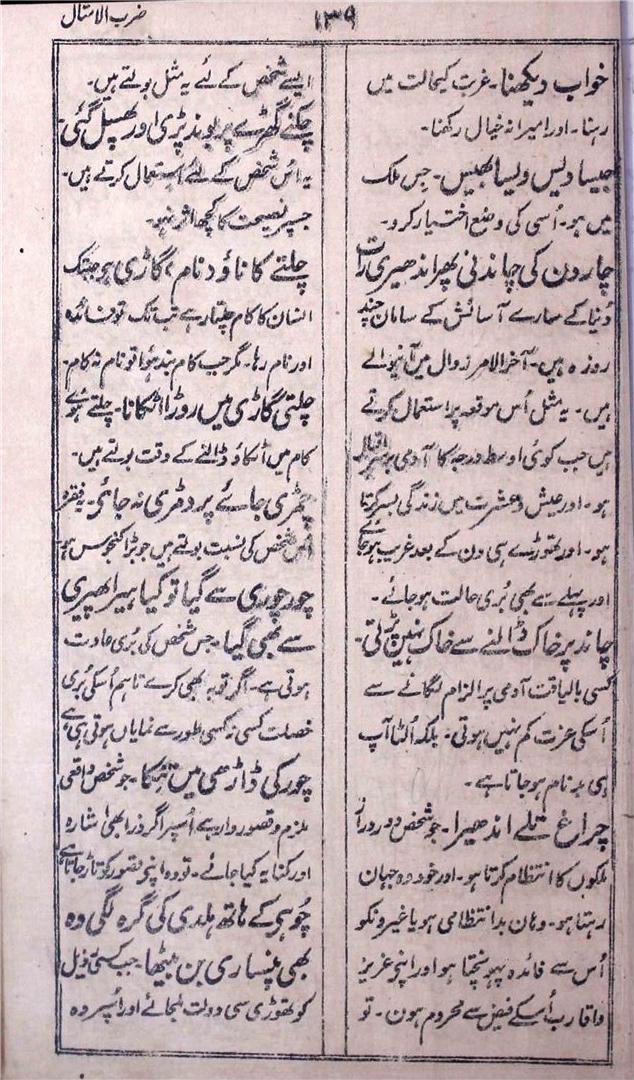 ضرب الامثال
۱۳۹
خواب دیکھنا۔ غربت کیحالت میں
رہنا۔ اور امیرانہ خیال رکھنا۔
جیسا دیس ویسا بھیس۔ جس ملک
میں ہو۔ اُسی کی وضع اختیار کرو۔
چار دن کی چاندنی پھر اندھیری رات
دُنیا کے سارے آسائش کے سامان چند
روزہ ہیں۔ آخر الامر زوال میں آنیوالے
ہیں۔ یہ مثل اُس موقعہ پر استعمال کرتے
ہیں جب کوئی اوسط درجہ کا آدمی
ہو۔ اور عیش و عشرت میں زندگی بسر کرتا
ہو۔ اور تھوڑے ہی دن کے بعد غریب ہوجائے
اور پہلے سے بھی بُری حالت ہوجائے۔
چاند پر خاک ڈالنے سے خاک نہین پڑتی۔
کسی بالیاقت آدمی پر الزام لگانے سے
اُسکی عزت کم نہیں ہوتی۔ بلکہ اُلٹا آپ
ہی بدنام ہوجاتا ہے۔
چراغ تلے اندھیرا۔ جو شخص دور دراز
ملکوں کا انتظام کرتا ہو۔ اور خود وہ جہان
رہتا ہو۔ وہان بدانتظامی ہو یا غیرونکو
اُس سے فائدہ پہونچتا ہو اور اپنے عزیز
واقارب اُسکے فیض سے محروم ہون۔ تو
ایسے شخص کے لئے یہ مثل بولتے ہیں۔
چکنے گھڑے پر بوند پڑی اور پھسل گئی
یہ اُس شخص کے لئے استعمال کرتے ہیں۔
جسپر نصیحت کا کچھ اثر نہو۔
چلتے کا ناؤ دنام، گاڑی ہو جبتک
انسان کا کام چلتا رہے تب تک تو فائدہ
اور نام رہا۔ مگر جب کام بند ہُوا تو نام نہ کام۔
چلتی گاڑی میں روڑا اٹکانا۔ چلتے ہوئے
کام میں اٹکاؤ ڈالنے کے وقت بولتے ہیں۔
چمڑی جائے پر دمڑی نہ جائے۔ یہ فقرہ
اُس شخص کی نسبت بولتے ہیں جو بڑا کنجوس ہو
چور چوری سے گیا تو کیا ہیرا پھیری
سے بھی گیا۔ جس شخص کی بُری عادت
ہوتی ہے۔ اگر توبہ بھی کرے تاہم اُسکی بُری
خصلت کسی نہ کسی طور سے نمایاں ہوتی ہی ہے
چور کی ڈاڑھی میں تنکا۔ جو شخص واقعی
ملزم و قصوروار ہے اُسپر اگر ذرا بھی اشارہ
اور کنایہ کیا جائے۔ تو وہ اپنے قصور کو تاڑ جاتا ہے
چُوہے کے ہاتھ ہلدی کی گرہ لگی وہ
بھی پنساری بن بیٹھا۔ جب کسی رذیل
کو تھوڑی سی دولت ملجائے اور اُسپر وہ